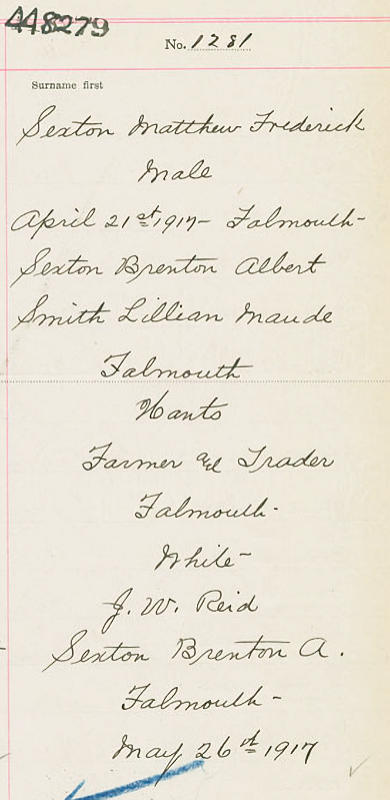 448279
No. 1281
Surname first
Sexton Matthew Frederick
Male
April 21st 1917 - Falmouth -
Sexton Brenton Albert
Smith Lillian Maude
Falmouth
Hants
Farmer and Trader
Falmouth -
White -
J. W. Reid
Sexton Brenton A.
Falmouth -
May 26th 1917